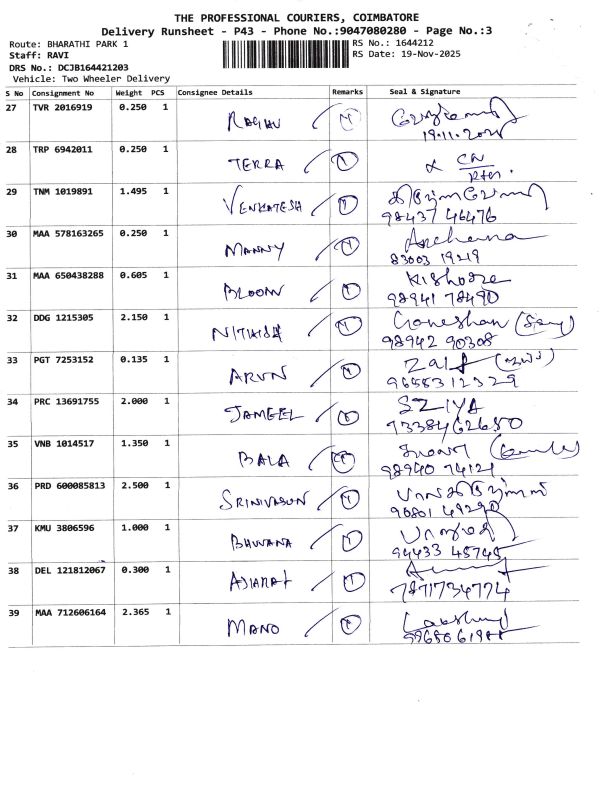 THE PROFESSIONAL COURIERS, COIMBATORE
Delivery Runsheet - P43 - Phone No.:9047080280 - Page No.:3
Route: BHARATHI PARK 1 RS No.: 1644212
Staff: RAVI RS Date: 19-Nov-2025
DRS No.: DCJB164421203
Vehicle: Two Wheeler Delivery
S No Consignment No Weight PCS Consignee Details Remarks Seal & Signature
27 TVR 2016919 0.250 1 RAGHU
19.11.2025
28 TRP 6942011 0.250 1 TERRA
29 TNM 1019891 1.495 1 VENKATESH
98437 46476
30 MAA 578163265 0.250 1 MANNY Archana
83003 19219
31 MAA 650438288 0.605 1 BLOOM Kishore
98941 78490
32 DDG 1215305 2.150 1 Ganeshan
98942 90308
33 PGT 7253152 0.135 1 ARUN
9655312329
34 PRC 13691755 2.000 1 JAMEEL
35 VNB 1014517 1.350 1 BALA
98940 74121
36 PRD 600085813 2.500 1 SRINIVASAN பாலகிருஷ்ணன்
37 KMU 3806596 1.000 1 BHUVANA
94433 45745
38 DEL 121812067 0.300 1
7871734774
39 MAA 712606164 2.365 1 MANO